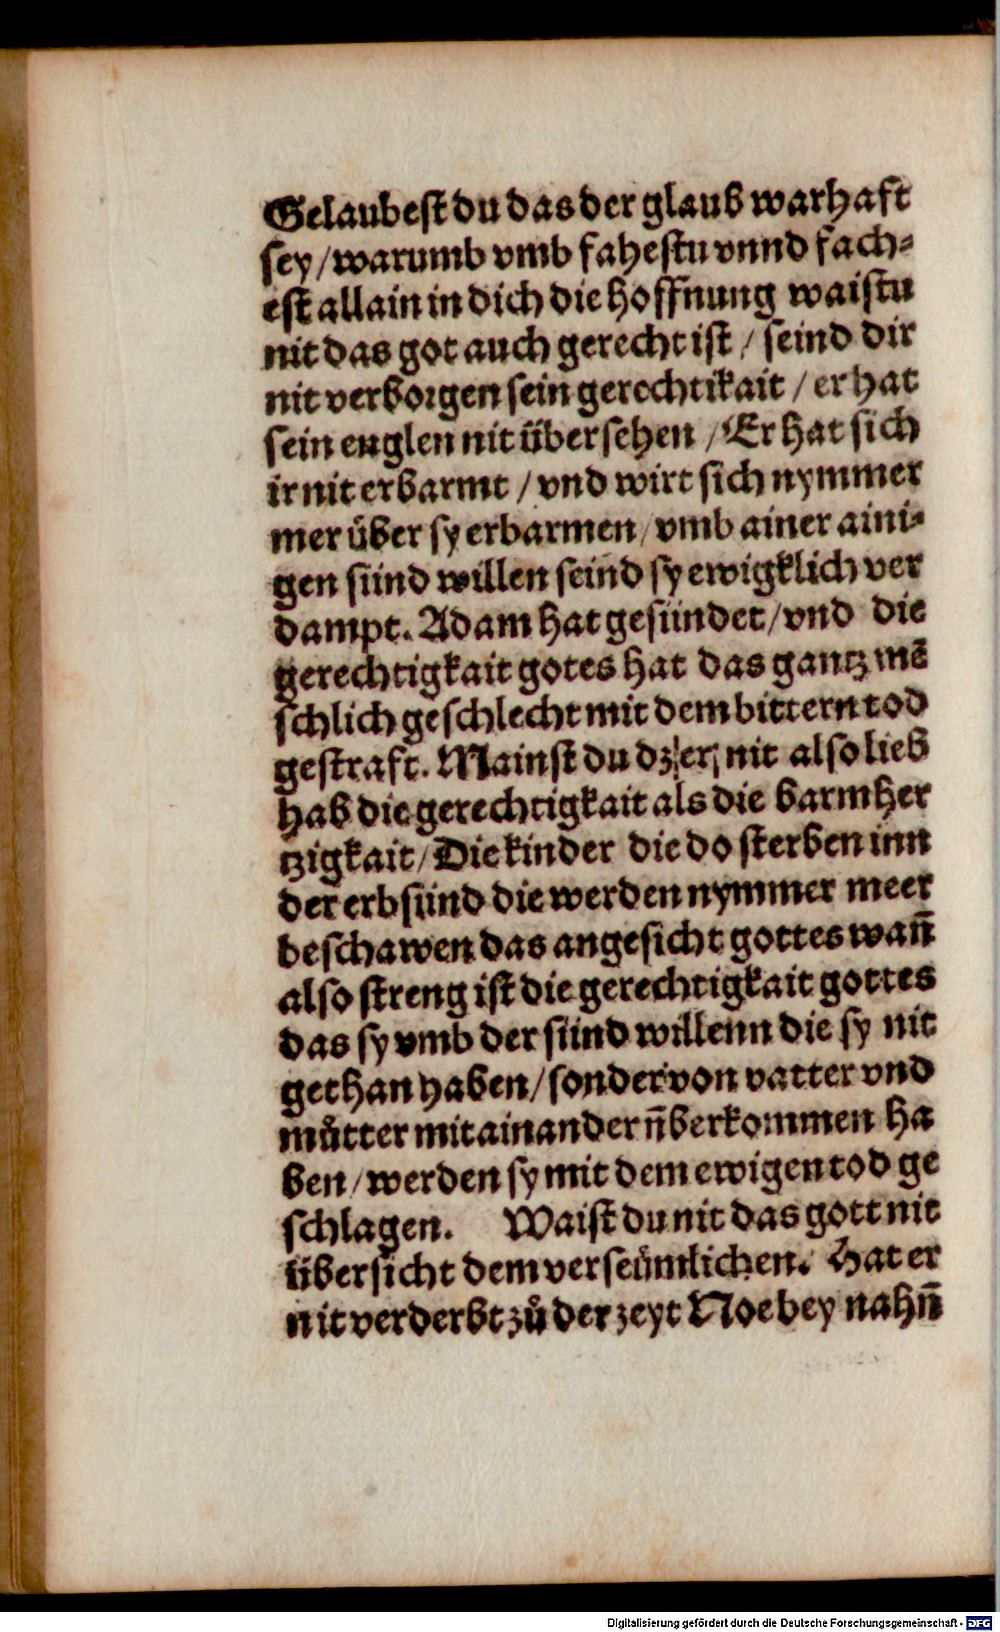 Gelaubest du das der glaub warhaft
sey / warumb vmb fahestu vnnd fach⸗
est allain in dich die hoffnung waistu
nit das got auch gerecht ist / seind dir
nit verborgen sein gerechtikait / er hat
sein englen nit übersehen / Er hat sich
ir nit erbarmt / vnd wirt sich nymmer
mer über sy erbarmen / vmb ainer aini⸗
gen sünd willen seind sy ewigklich ver
dampt. Adam hat gesündet / vnd die
gerechtigkait gotes hat das gantz mē
schlich geschlecht mit dem bittern tod
gestraft. Mainst du dz er nit also lieb
hab die gerechtigkait als die barmher
tzigkait / Die kinder die do sterben inn
der erbsünd die werden nymmer meer
beschawen das angesicht gottes wan̄
also streng ist die gerechtigkait gottes
das sy vmb der sünd willenn die sy nit
gethan haben / sonder von vatter vnd
můtter mit ainander n̄berkommen ha
ben / werden sy mit dem ewigen tod ge
schlagen. Waist du nit das gott nit
übersicht dem verseümlichen. Hat er
nit verderbt zů der zeyt Noe bey nahn̄
Digitalisierung gefördert durch die Deutsche Forschungsgemeinschaft - DFG